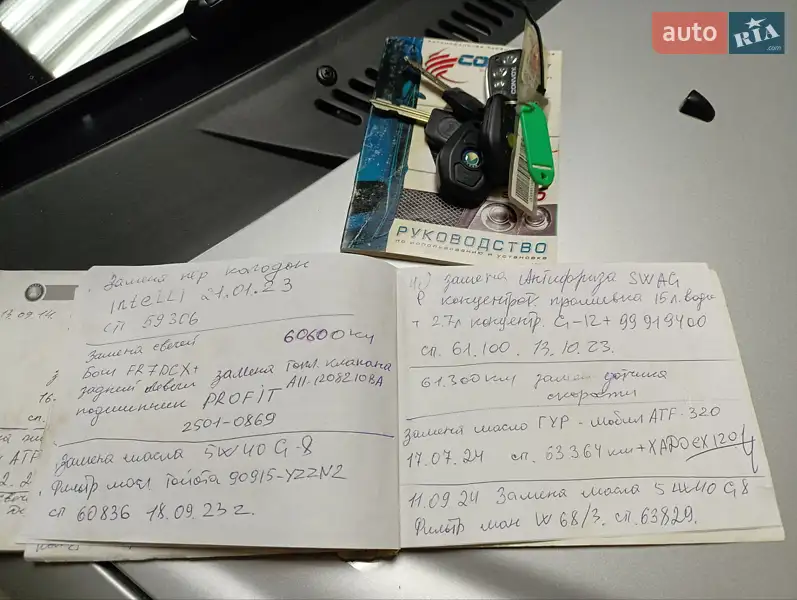 auto RIA .com
CONVOX
РУКОВОДСТВО
по использованию и установке
13.09.14
16.
сп.
ATF
2.2
Замена пер колодок
Intelli 21.01.23
сп 59306
60600км
Замена свечей
Бош FR7DCX+
задний левый замена топл. клапана
подшипник PROFIT A11-1208210BA
2501-0869
Замена масла 5W40 G-8
Фильтр масл Тойота 90915-YZZN2
сп 60836 18.09.23г.
замена Антифриза SWAG
концентрат. промывка 15л. воды
+ 2.7л концентр. G-12+ 99919400
сп. 61.100. 13.10.23.
61.300км замен датчика
скорости
Замена масло ГУР - мобил ATF-320
17.07.24 сп. 63364 км + XADO EX120
11.09.24 Замена масла 5W40 G8
Фильтр ман W 68/3. сп. 63829.